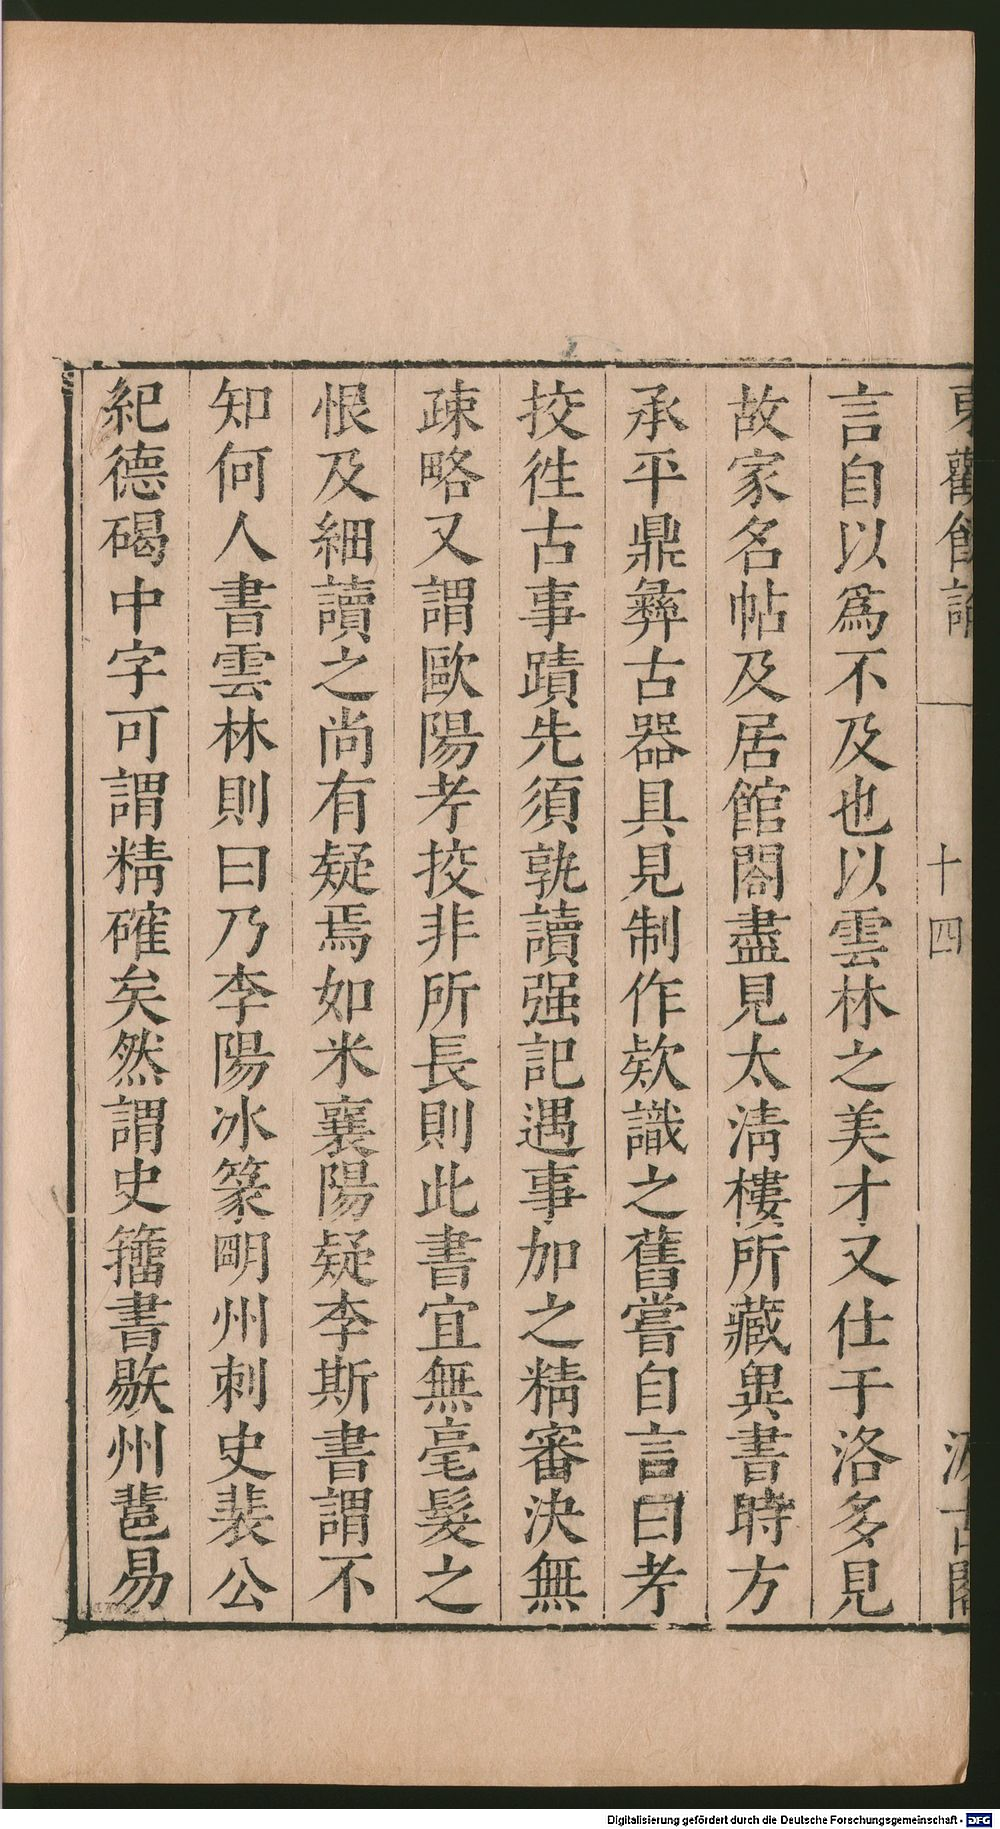 東觀餘論 一 十四 汲古閣
言自以爲不及也以雲林之美才又仕于洛多見
故家名帖及居館閣盡見太淸樓所藏異書時方
承平鼎彝古器具見制作欵識之舊嘗自言曰考
挍徃古事蹟先須孰讀强記遇事加之精審決無
疎略又謂歐陽考挍非所長則此書宜無毫髮之
恨及細讀之尚有疑焉如米襄陽疑李斯書謂不
知何人書雲林則曰乃李陽冰篆明州刺史裴公
紀德碣中字可謂精確矣然謂史籀書敭州䓣易
Digitalisierung gefördert durch die Deutsche Forschungsgemeinschaft - DFG